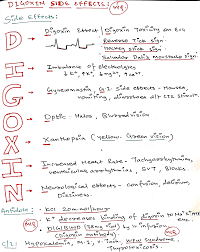 DIGOXIN SIDE EFFECTS:
Side Effects:
D Digoxin Effect / Digoxin Toxicity on ECG
Reverse tick sign
Hockey stick sign
Salvador Dali's moustache sign
I Imbalance of Electrolytes
G Gynecomastia, G.I. side effects - Nausea,
vomiting, diarrhoea d/t CTZ stimul".
O Optic - Halos, Blurred vision
X Xanthopsia (yellow-green vision)
I Increased Heart Rate - Tachyarrhythmias,
ventricular arrhythmias, SVT, Blocks.
N Neurological effects - Confusion, delirium,
Dizziness.
Antidote: • KCl 20 m mol/hour
K+ decreases binding of digoxin to
DIGIBIND infusion
C/I: Hypokalemia, M.I,
Thyrotoxicosis